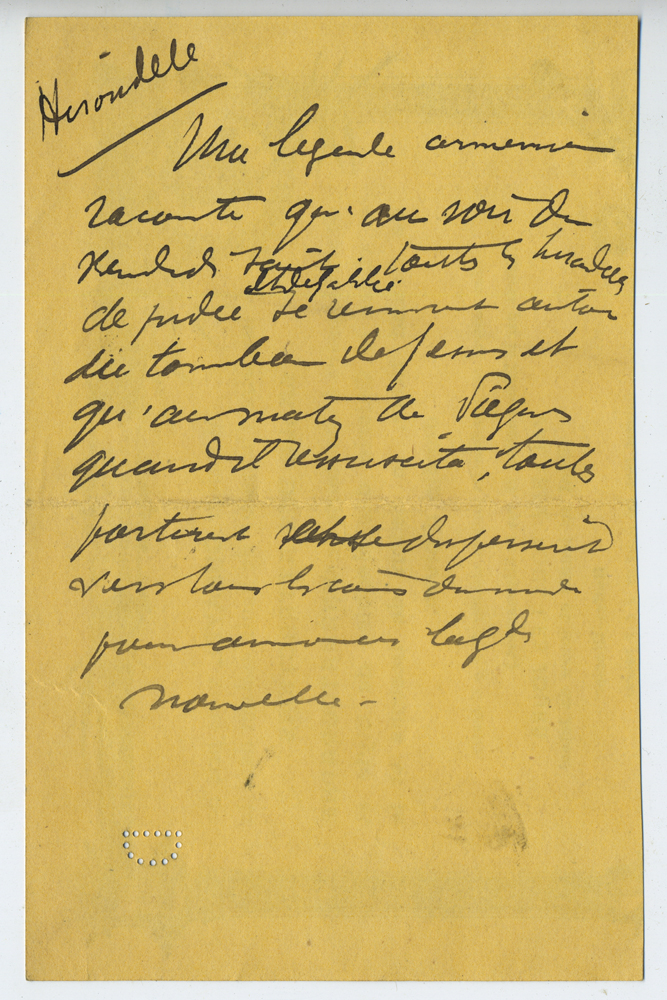 Hirondelle
Une légende arménienne
raconte qu'au soir du
vendredi saint toutes les hirondelles
de Judée se réunirent autour
du tombeau de Jésus et
qu'au matin de Pâques
quand il ressuscita, toutes
partirent se dispersèrent
vers tous les coins du monde
pour annoncer la gde
nouvelle -